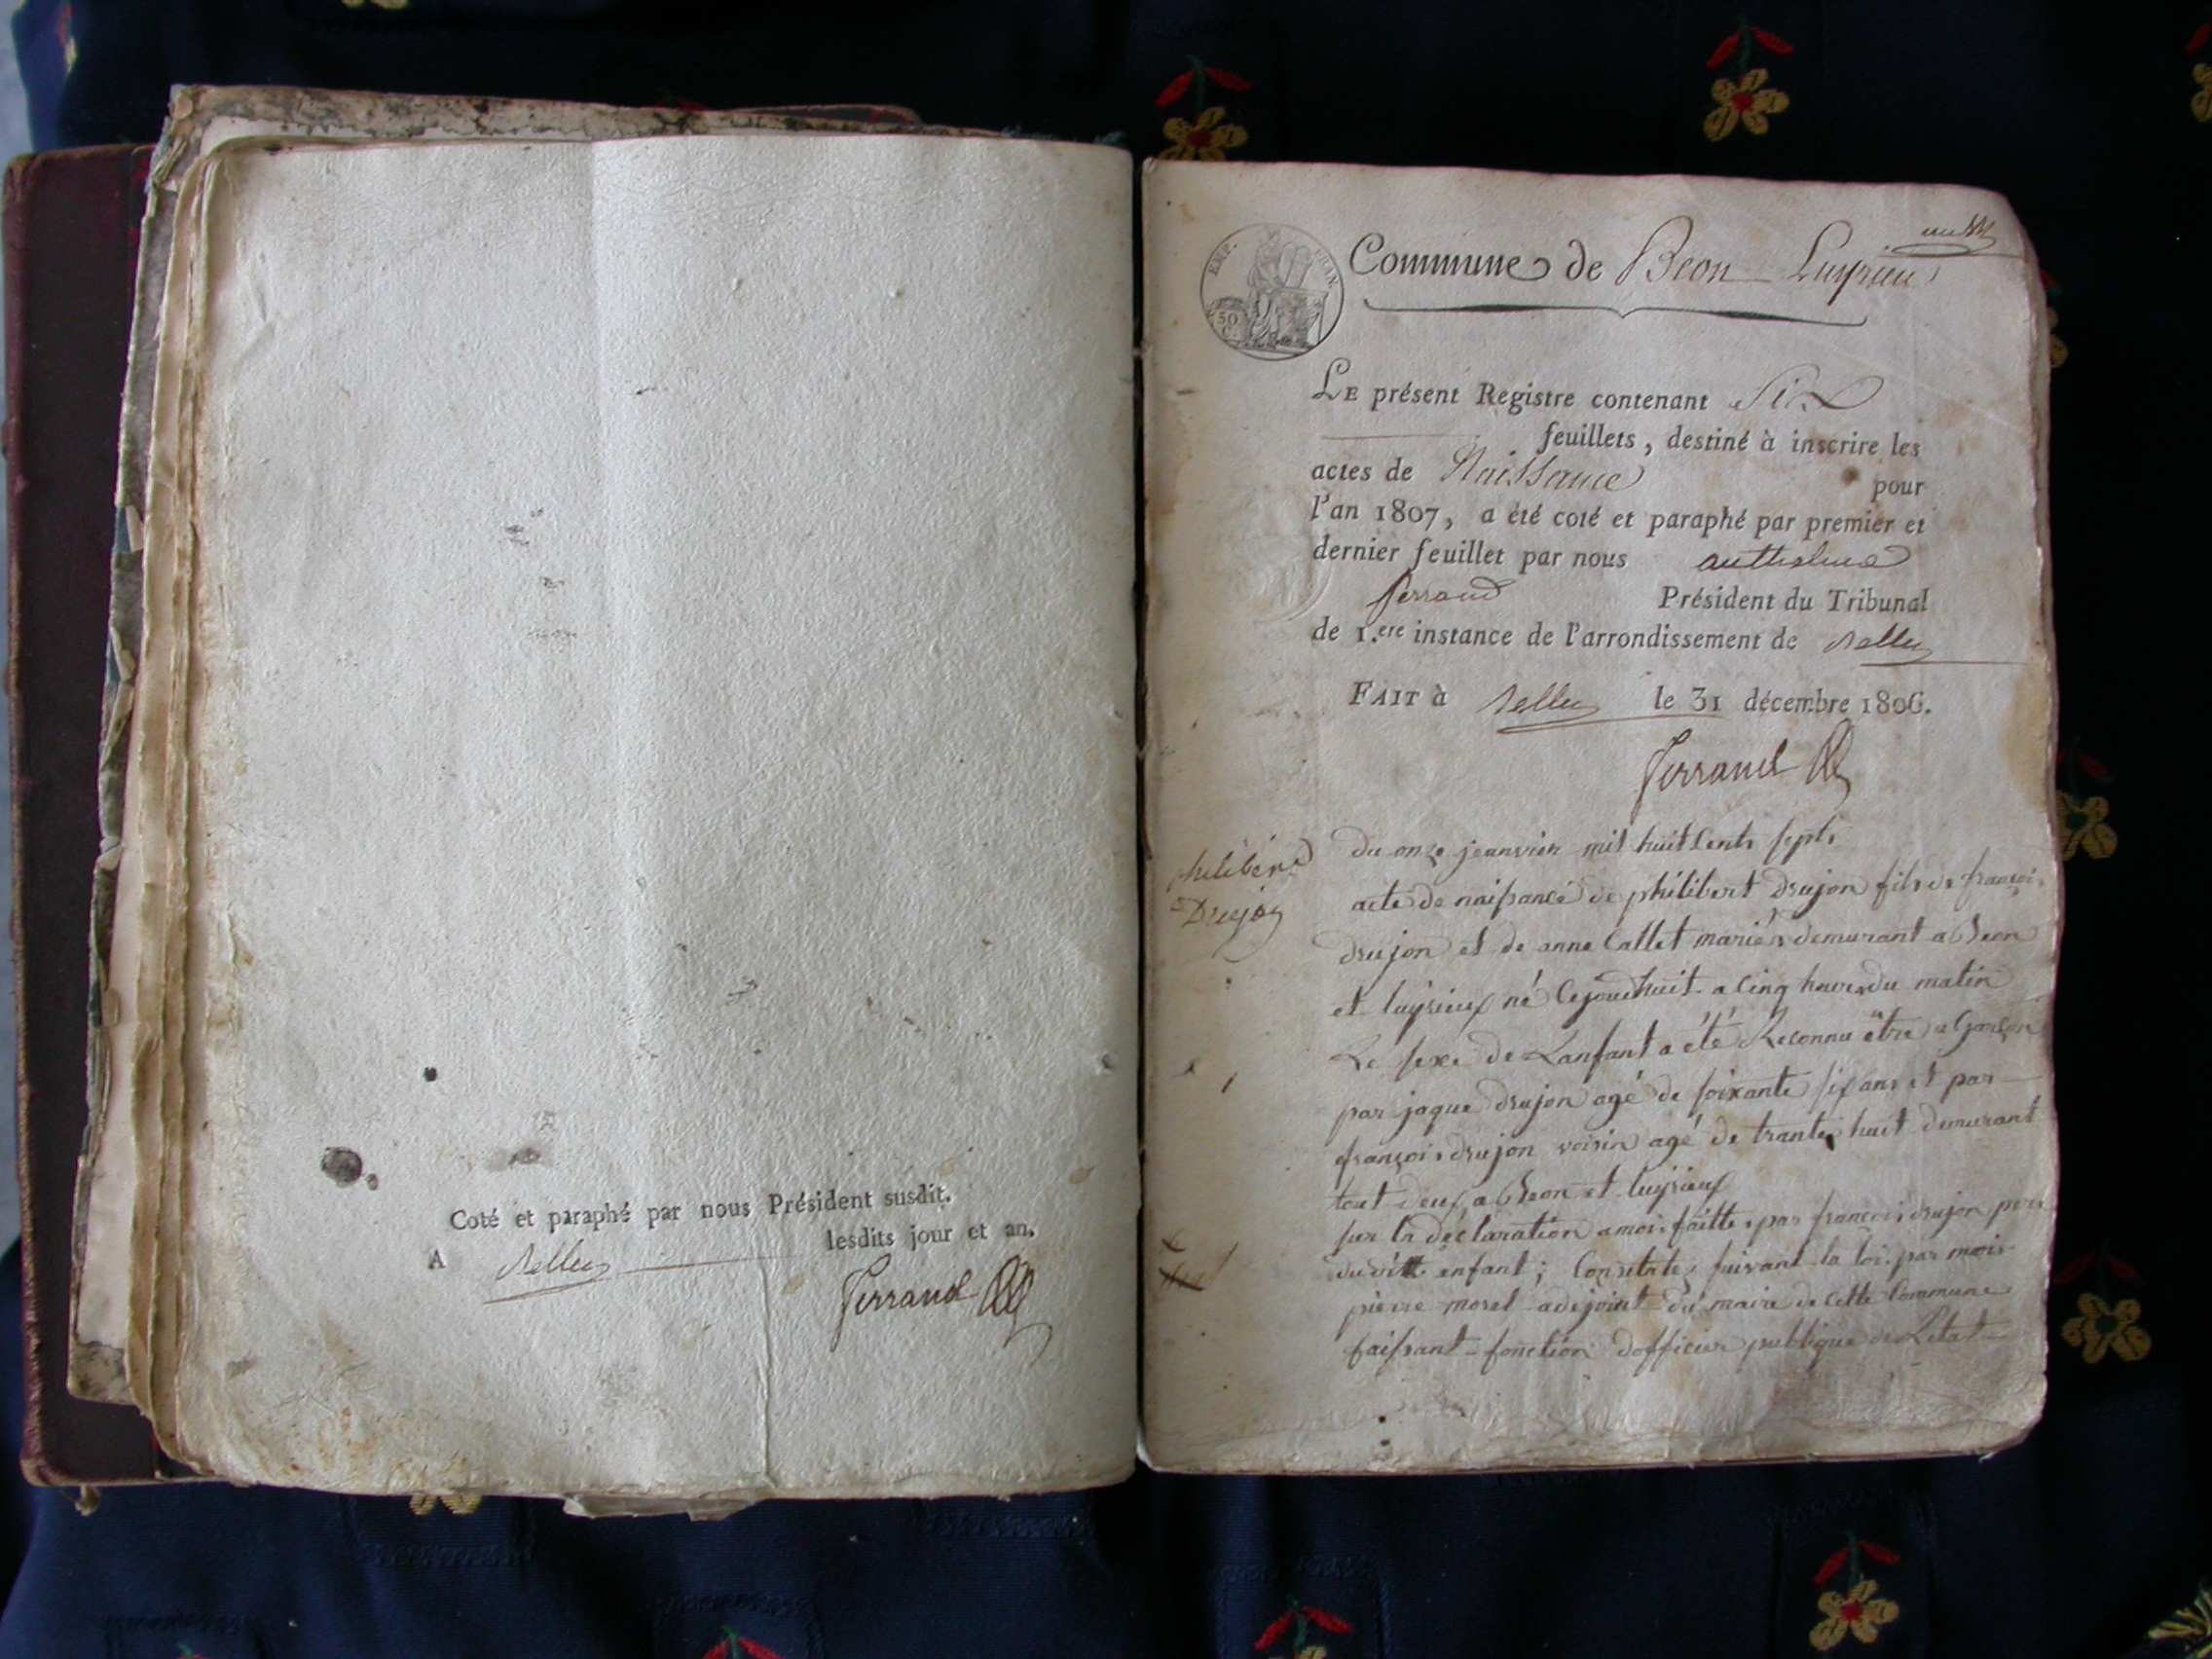 Coté et paraphé par nous Président susdit.
A Belley lesdits jour et an.
Ferrand
EMP. FRAN.
50 C.
Commune de Beon Luyrieu
Le présent Registre contenant Six
feuillets, destiné à inscrire les
actes de Naissance pour
l'an 1807, a été coté et paraphé par premier et
dernier feuillet par nous anthelme
ferrand Président du Tribunal
de 1.ere instance de l'arrondissement de Belley
Fait à Belley le 31 décembre 1806.
Ferrand
philibert
Drujon
du onze jeanvier mil huit Cents sept,
acte de naissance de philibert drujon fils de françois
drujon et de anne Callet mariés demurant a Beon
et luyrieux né Cejourdhuit a Cinq heures du matin
Le sexe de Lanfant a été Reconnu être a Garson
par jaque drujon agé de soixante six ans et par
françois drujon voisin agé de trante huit demurant
tout deux a Beon et luyrieux
sur la déclaration a moi faitte par françois drujon pere
dudit enfant; Constaté suivant la loi par moi
pierre morel adejoint du maire de Cette Commune
faissant fonction dofficier publique de Letat